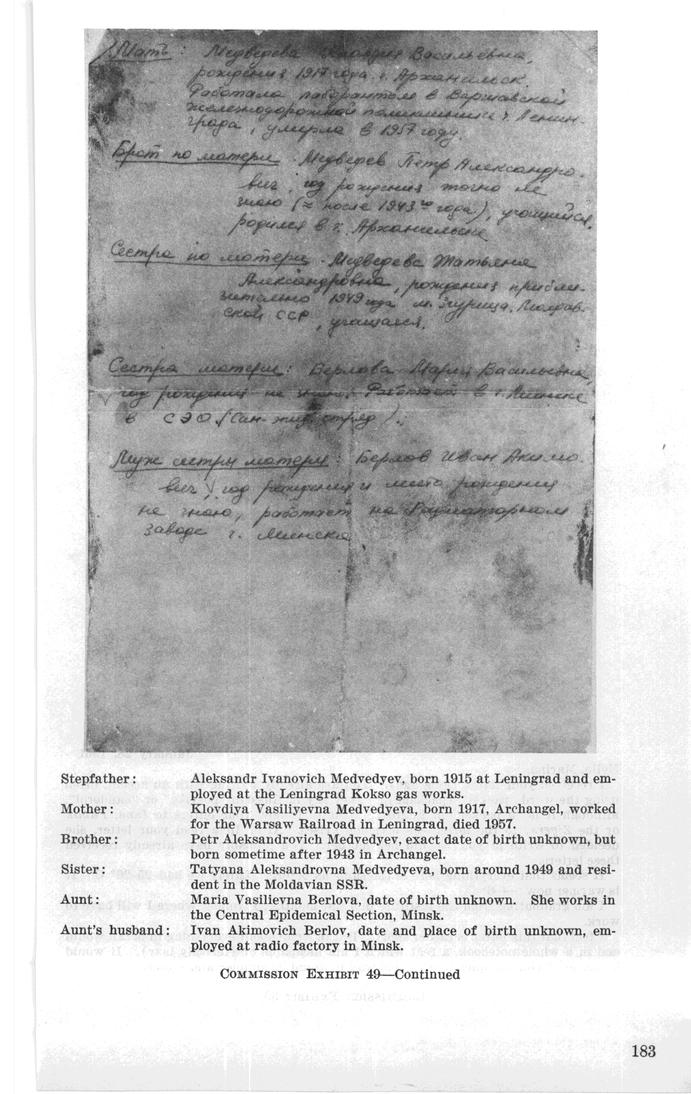 Мать: Медведева Клавдия Васильевна,
рождения 1917 года г. Архангельск.
Работала лаборантом в Варшавской
железнодорожной поликлинике г. Ленин-
града, умерла в 1957 году.
Брат по матери - Медведев Петр Александро-
вич, год рождения точно не
знаю (≈ после 1943го года), учащийся,
родился в г. Архангельске
Сестра по матери - Медведева Татьяна
Александровна, рождения прибли-
зительно 1949 года м. Згурица, Молдав-
ской ССР, учащаяся.
Сестра матери: Берлова Мария Васильевна,
год рождения не знаю. Работает в г. Минске
в СЭО (Сан. эпид. отряд).
Муж сестры матери: Берлов Иван Акимо-
вич, год рождения и место рождения
не знаю, работает на Радиаторном
заводе г. Минска
Stepfather: Aleksandr Ivanovich Medvedyev, born 1915 at Leningrad and em-
ployed at the Leningrad Kokso gas works.
Mother: Klovdiya Vasiliyevna Medvedyeva, born 1917, Archangel, worked
for the Warsaw Railroad in Leningrad, died 1957.
Brother: Petr Aleksandrovich Medvedyev, exact date of birth unknown, but
born sometime after 1943 in Archangel.
Sister: Tatyana Aleksandrovna Medvedyeva, born around 1949 and resi-
dent in the Moldavian SSR.
Aunt: Maria Vasilievna Berlova, date of birth unknown. She works in
the Central Epidemical Section, Minsk.
Aunt's husband: Ivan Akimovich Berlov, date and place of birth unknown, em-
ployed at radio factory in Minsk.
COMMISSION EXHIBIT 49—Continued
183